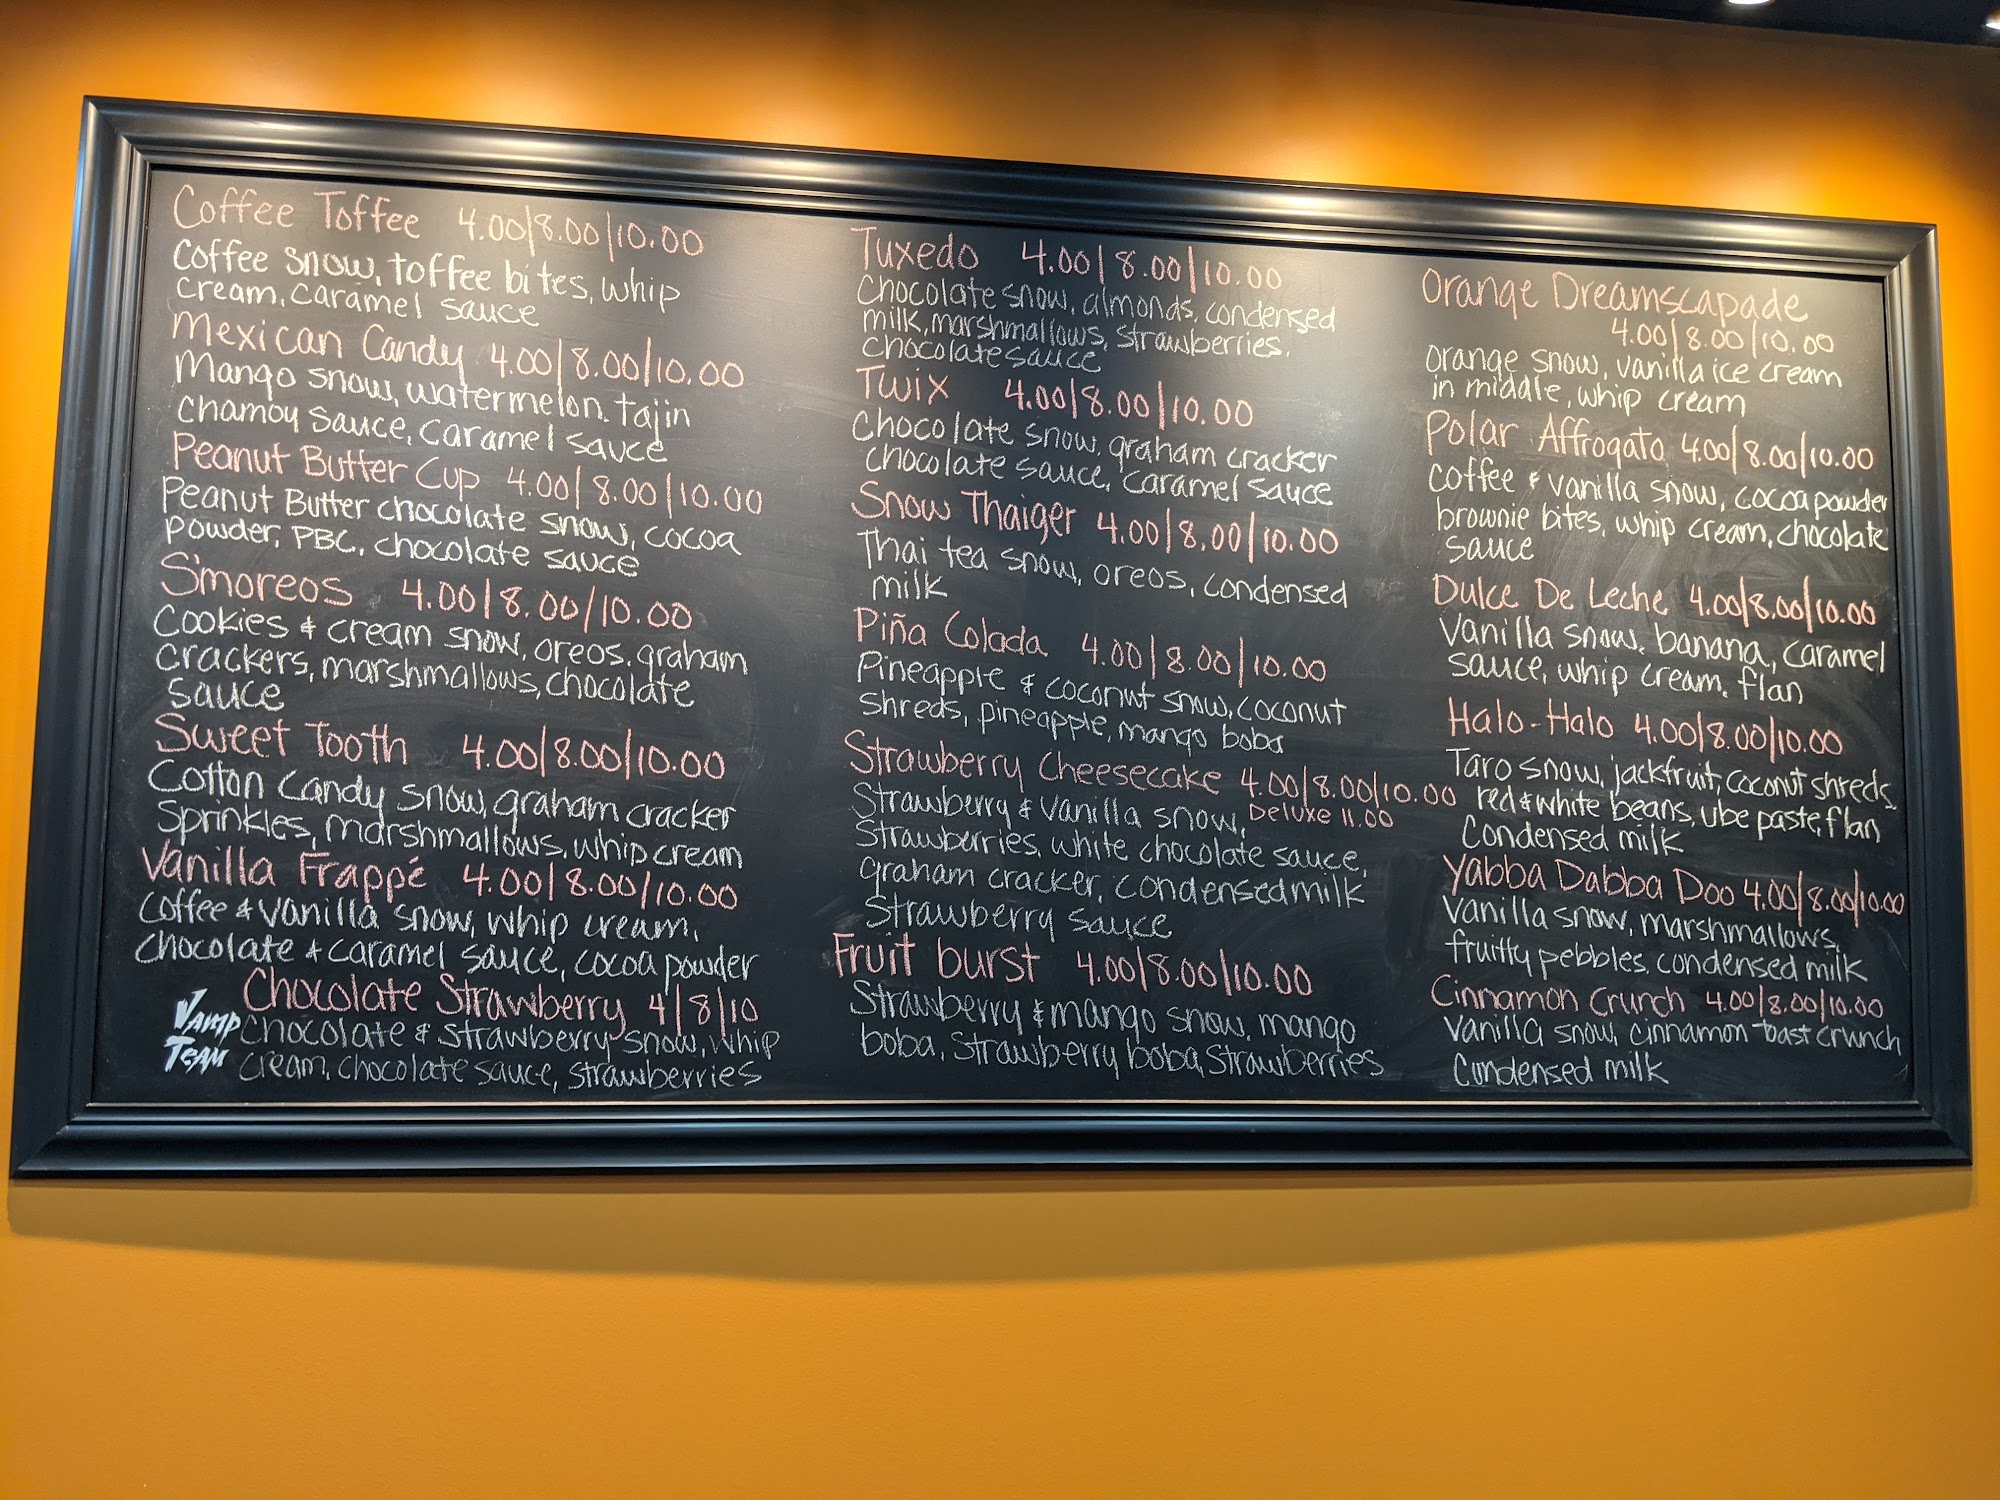 Coffee Toffee 4.00/8.00/10.00
Coffee Snow, toffee bites, whip
cream, caramel sauce
Mexican Candy 4.00/8.00/10.00
Mango snow, watermelon, tajin
Chamoy sauce, caramel sauce
Peanut Butter Cup 4.00/8.00/10.00
Peanut Butter chocolate snow, cocoa
powder, PBC, chocolate sauce
S'moreos 4.00/8.00/10.00
Cookies & cream snow, oreos, graham
crackers, marshmallows, chocolate
sauce
Sweet Tooth 4.00/8.00/10.00
Cotton Candy snow, graham cracker
Sprinkles, marshmallows, whip cream
Vanilla Frappé 4.00/8.00/10.00
Coffee & vanilla snow, whip cream,
Chocolate & caramel sauce, cocoa powder
Chocolate Strawberry 4/8/10
Chocolate & Strawberry snow, whip
cream, chocolate sauce, strawberries
VAMP
TEAM
Tuxedo 4.00/8.00/10.00
Chocolate snow, almonds, condensed
milk, marshmallows, strawberries,
chocolate sauce
Twix 4.00/8.00/10.00
Chocolate snow, graham cracker
chocolate sauce, caramel sauce
Snow Thaiger 4.00/8.00/10.00
Thai tea snow, oreos, condensed
milk
Piña Colada 4.00/8.00/10.00
Pineapple & coconut snow, coconut
Shreds, pineapple, mango boba
Strawberry Cheesecake 4.00/8.00/10.00
Deluxe 11.00
Strawberry & vanilla snow,
Strawberries, white chocolate sauce,
graham cracker, condensed milk
Strawberry sauce
Fruit burst 4.00/8.00/10.00
Strawberry & mango snow, mango
boba, strawberry boba, Strawberries
Orange Dreamscapade
4.00/8.00/10.00
Orange snow, vanilla ice cream
in middle, whip cream
Polar Affrogato 4.00/8.00/10.00
Coffee & vanilla snow, cocoa powder
brownie bites, whip cream, chocolate
sauce
Dulce De Leche 4.00/8.00/10.00
Vanilla snow, banana, caramel
sauce, whip cream, flan
Halo-Halo 4.00/8.00/10.00
Taro snow, jackfruit, coconut shreds,
red & white beans, ube paste, flan
Condensed milk
Yabba Dabba Doo 4.00/8.00/10.00
Vanilla snow, marshmallows,
fruitty pebbles, condensed milk
Cinnamon Crunch 4.00/8.00/10.00
Vanilla snow, cinnamon toast crunch
Condensed milk